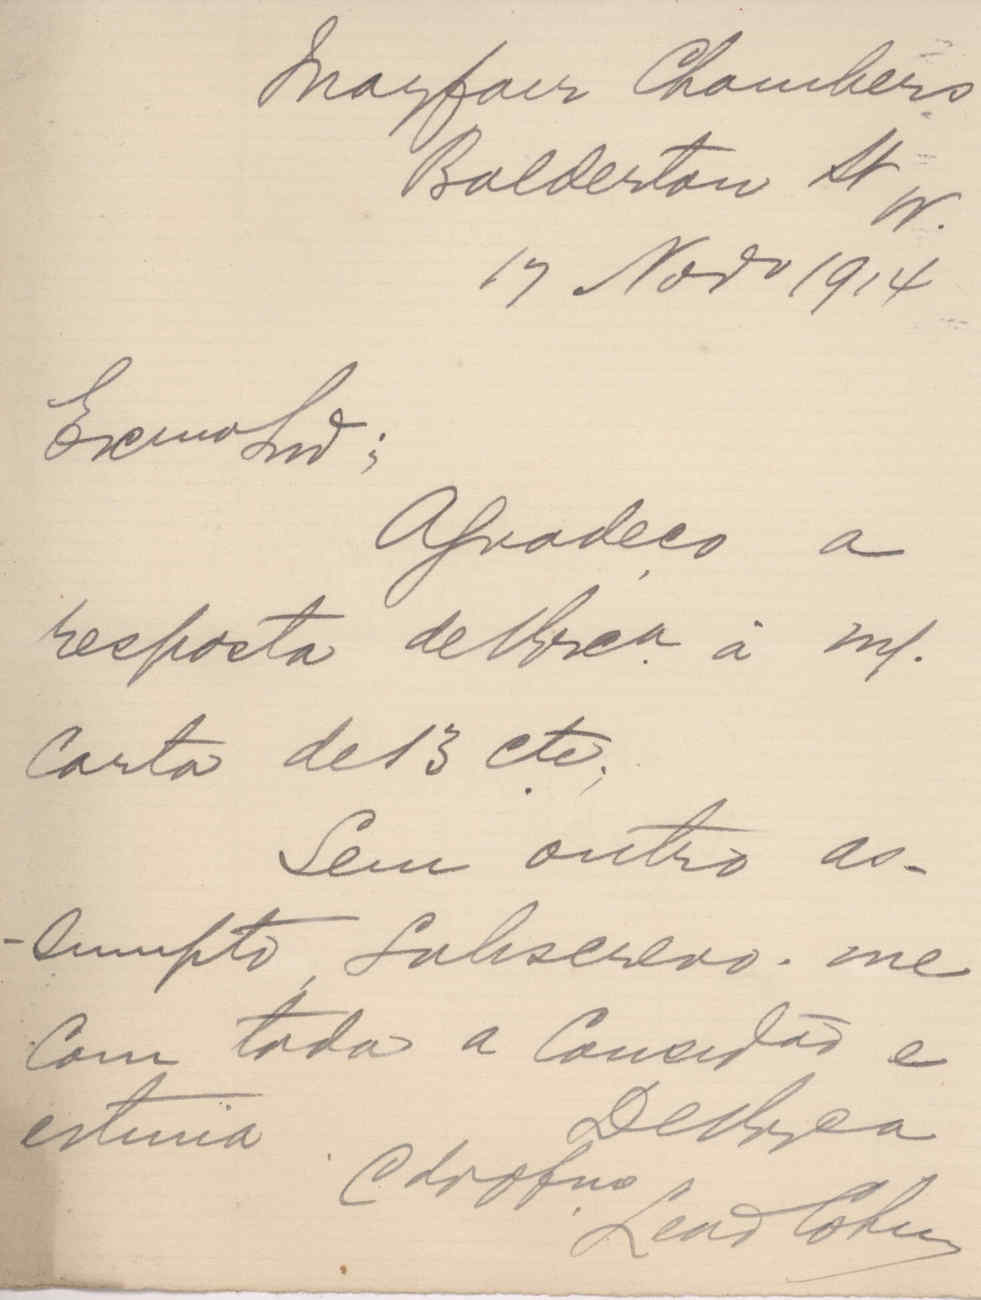 Mayfair Chambers
Balderton St
W.
17 Novo 1914
Exmo Snr;
Agradeço a
resposta de V Exca á m/.
Carta de 13 cte;
Sem outro as-
-sumpto, subscrevo-me
com toda a Considão e
estima De V Exa
Cdo Obgo
Cohen